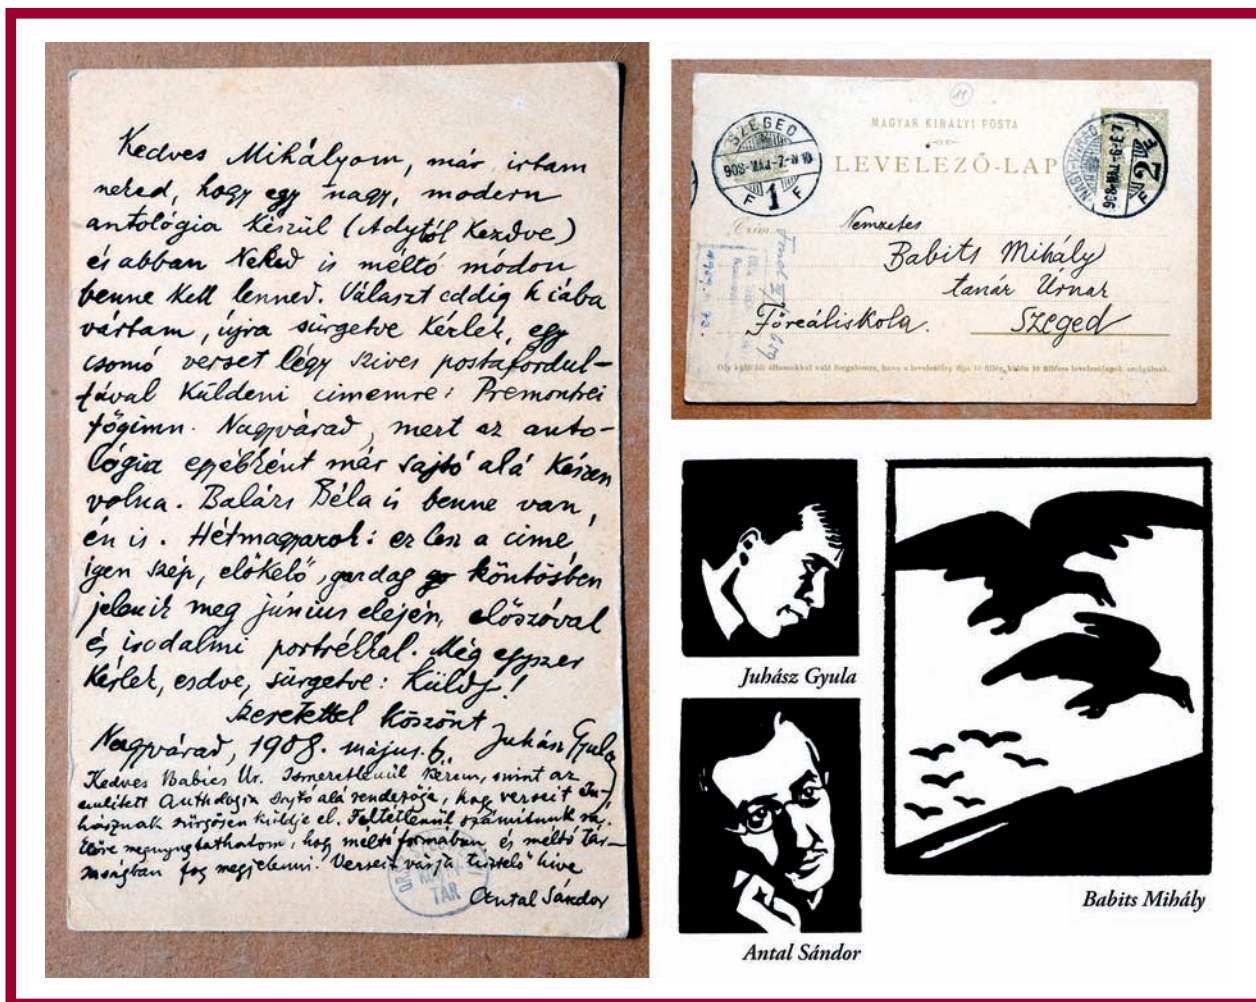 Kedves Mihályom, már irtam
neked, hogy egy nagy, modern
antológia készül (Adytól kezdve)
és abban Neked is méltó módon
benne kell lenned. Választ eddig hiába
vártam, újra sürgetve kérlek, egy
csomó verset légy szives postafordul-
tával küldeni cimemre: Premontrei
főgimn. Nagyvárad, mert az anto-
lógia egyébként már sajtó alá készen
volna. Balázs Béla is benne van,
én is. Hétmagyarok: ez lesz a cime
igen szép, előkelő, gazdag köntösben
jelenik meg június elején, előszóval
és irodalmi portrékkal. Még egyszer
kérlek, esdve, sürgetve: Küldj!
Szeretettel köszönt
Nagyvárad, 1908. május. 6. Juhász Gyula
Kedves Babics Úr. Ismeretlenül kérem, mint az
említett Anthologia sajtó alá rendezője, hogy verseit Ju-
hásznak sürgősen küldje el. Feltétlenül számítunk rá.
Előre megnyugtathatom, hogy méltó formában és méltó tár-
saságban fog megjelenni. Verseit várja tisztelő hive
Antal Sándor
TÁR
11
MAGYAR KIRÁLYI POSTA
LEVELEZŐ-LAP
SZEGED
F 1 F
NAGY-VÁRAD
F 2
Czim
Nemzetes
Babits Mihály
tanár Úrnak
Főreáliskola. Szeged
Oly külföldi államokkal való forgalomra, hova a levelezőlap díja 10 fillér, külön 10 filléres levelezőlapok szolgálnak.
Juhász Gyula
Antal Sándor
Babits Mihály